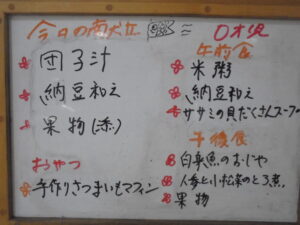 今日の献立
団子汁
納豆和え
果物(添)
おやつ
手作りさつまいもマフィン
0才児
午前食
米粥
納豆和え
ササミの具だくさんスープ
午後食
白身魚のおじや
人参と小松菜のとろ煮
果物